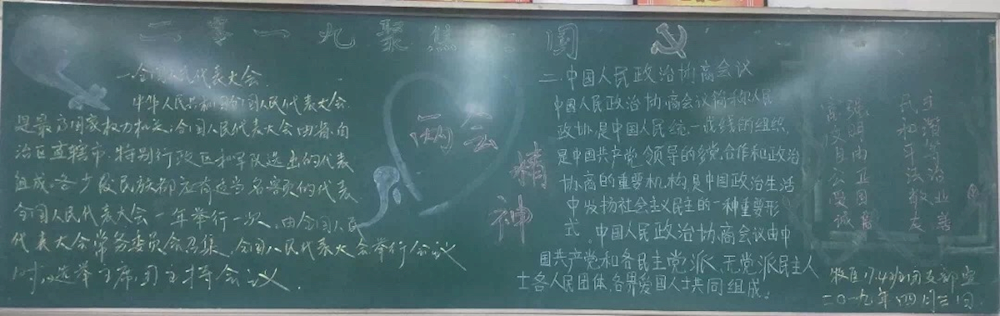 二零一九聚焦 国
一.全国人民代表大会.
中华人民共和国全国人民代表大会
是最高国家权力机关.全国人民代表大会由省.自
治区直辖市.特别行政区和军队选出的代表
组成.各少数民族都应有适当名额的代表
全国人民代表大会一年举行一次.由全国人民
代表大会常务委员会召集.全国人民代表大会举行会议
时.选举主席团主持会议.
两会
精
神
二.中国人民政治协商会议
中国人民政治协商会议简称人民
政协.是中国人民统一战线的组织.
是中国共产党领导的多党合作和政治
协商的重要机构.是中国政治生活
中发扬社会主义民主的一种重要形
式.中国人民政治协商会议由中
国共产党和各民主党派.无党派民主人
士各人民团体.各界爱国人士共同组成.
富强
文明
自由
公正
爱国
诚
民主
和谐
平等
法治
敬业
友
17.4班团支部宣
二〇一九年四月三日